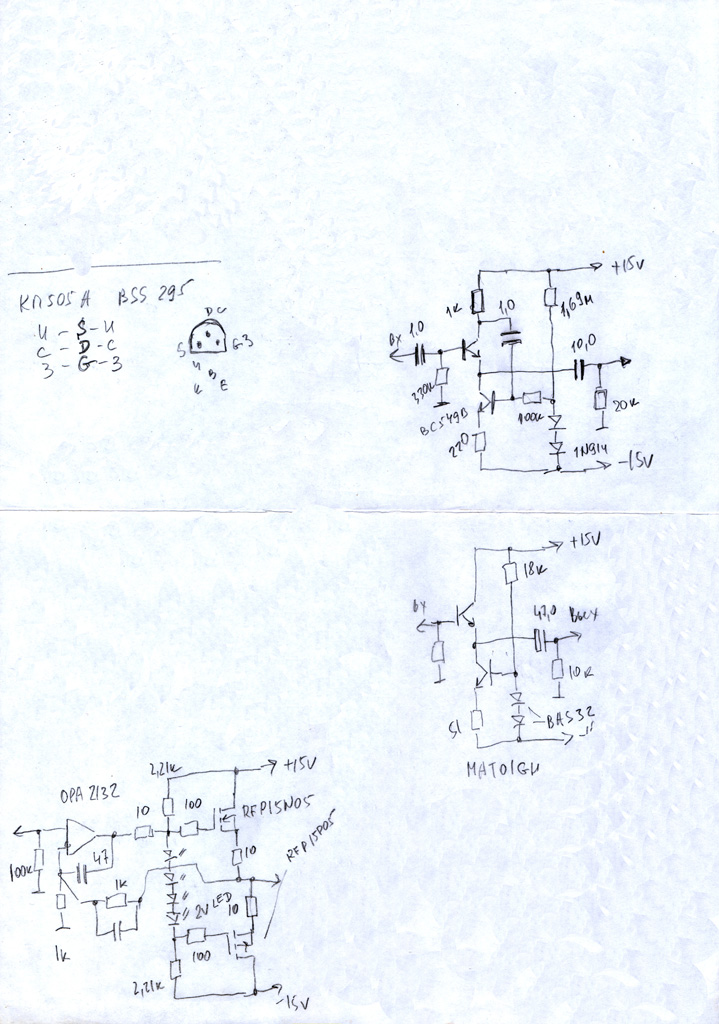 КП505А BSS 295
И - S - И
С - D - С
З - G - З
D C
S
G З
И
К
Б
Е
+15V
1к
1,0
1,69м
Вх
1,0
10,0
330к
BC549B
100к
20к
220
1N914
-15V
+15V
18к
Вх
47,0
Вых
10к
51
BAS32
-"
MAT01GH
2,21к
+15V
OPA 2132
10
100
RFP15N05
47
10
RFP15P05
100к
1к
LED
2V
10
1к
100
2,21к
-15V